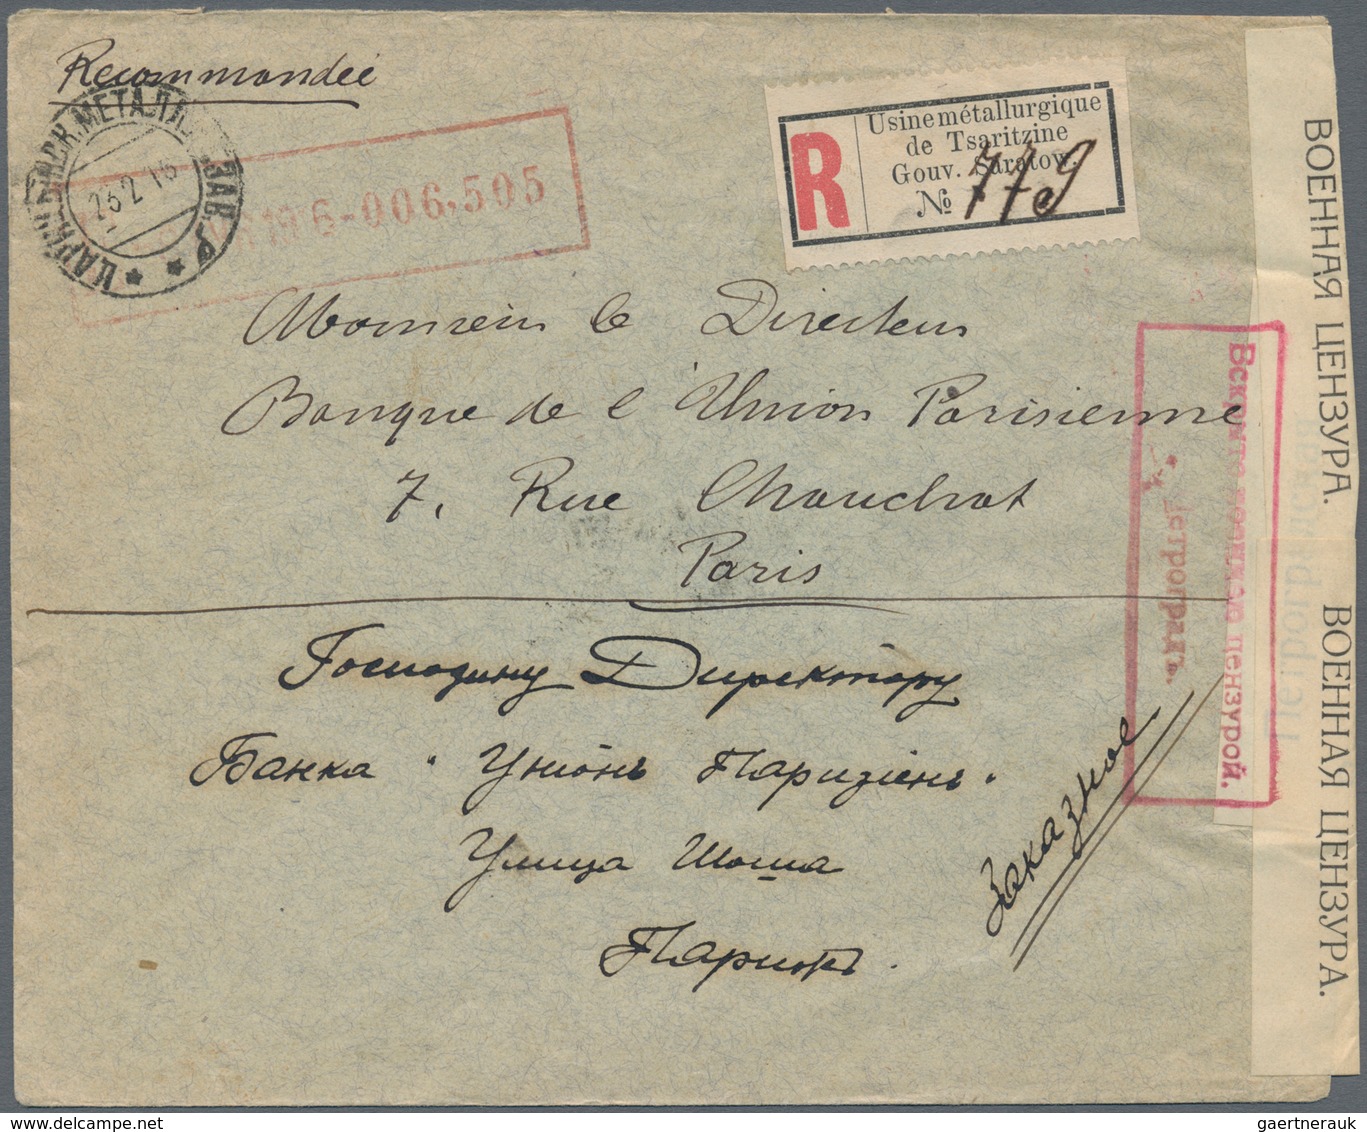 Recommandée
23 2 16
6-006,505
R
Usine métallurgique
de Tsaritzine
Gouv. Saratow.
№ 779
Monsieur le Directeur
Banque de l'Union Parisienne
7, Rue Chauchat
Paris
Господину Директору
Банка "Унiонъ Паризiенъ"
Улица Шоша
Парижъ.
Заказное
Вскрыто военной цензурой.
Петроградъ.
ВОЕННАЯ ЦЕНЗУРА.
ВОЕННАЯ ЦЕНЗУРА.
gaertnerauk